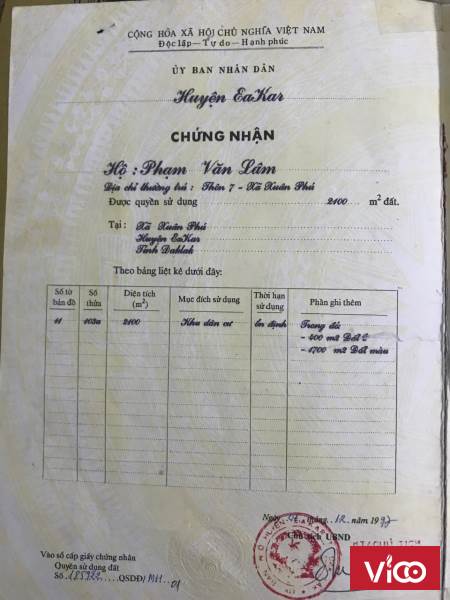 CỘNG HÒA XÃ HỘI CHỦ NGHĨA VIỆT NAM
Độc lập — Tự do — Hạnh phúc
ỦY BAN NHÂN DÂN
Huyện EaKar
CHỨNG NHẬN
Hộ : Phạm Văn Lâm
Địa chỉ thường trú : Thôn 7 - Xã Xuân Phú
Được quyền sử dụng 2100 m² đất.
Tại : Xã Xuân Phú
Huyện EaKar
Tỉnh Daklak
Theo bảng liệt kê dưới đây:
Số tờ bản đồ Số thửa Diện tích (m²) Mục đích sử dụng Thời hạn sử dụng Phần ghi thêm
11 103a 2100 Khu dân cư ổn định Trong đó
- 400 m2 Đất ở
- 1700 m2 Đất màu
Ngày 02 tháng 12 năm 1997
Chủ tịch UBND
Vào sổ cấp giấy chứng nhận
Quyền sử dụng đất
Số QSDĐ/
VICO